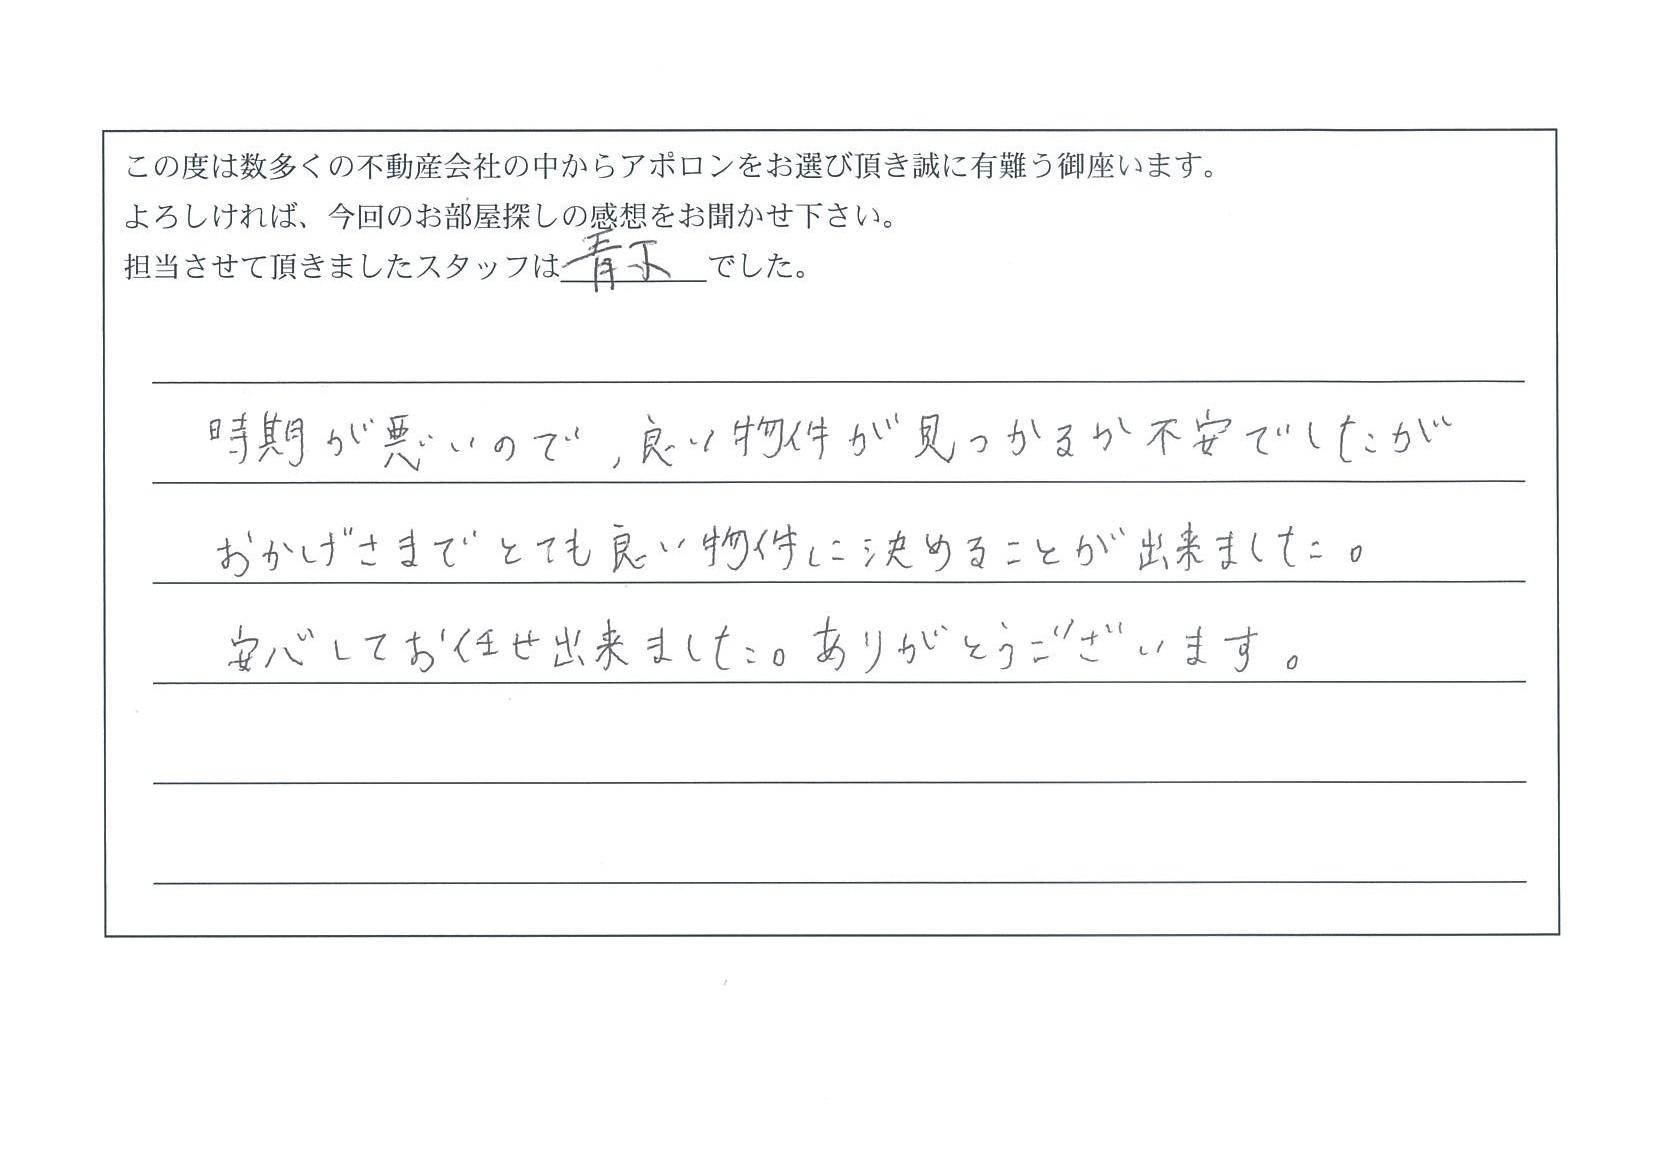 この度は数多くの不動産会社の中からアポロンをお選び頂き誠に有難う御座います。
よろしければ、今回のお部屋探しの感想をお聞かせ下さい。
担当させて頂きましたスタッフは青木でした。
時期が悪いので、良い物件が見つかるか不安でしたが
おかげさまでとても良い物件に決めることが出来ました。
安心してお任せ出来ました。ありがとうございます。